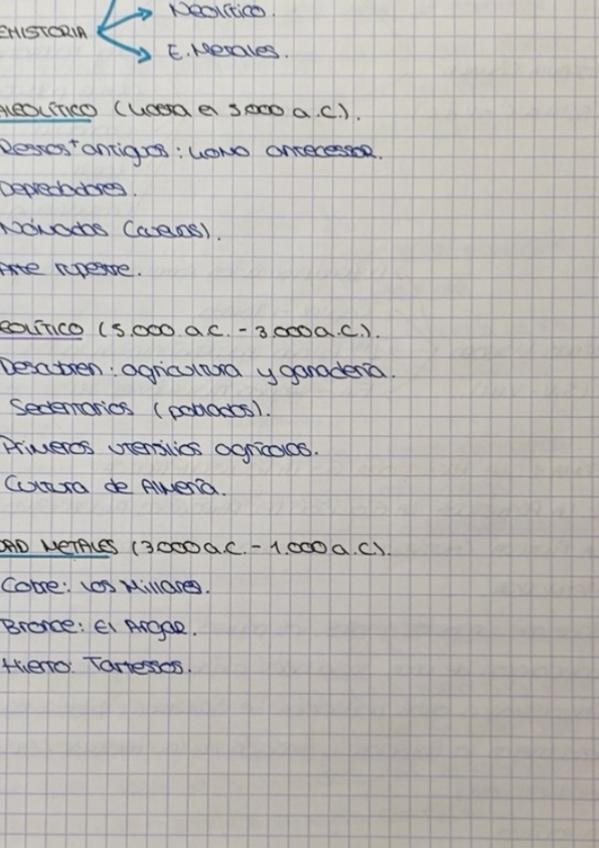 Neolítico.
EHISTORIA
E. Metales.
ALEOLÍTICO (Hasta el 5.000 a.C).
Restos + antiguos: Homo antecessor.
Depredadores.
Nómadas (cuevas).
Arte rupestre.
EOLÍTICO (5.000 a.C. - 3.000 a.C.).
Descubren: agricultura y ganadería.
Sedentarios (poblados).
Primeros utensilios agrícolas.
Cultura de Almería.
DAD METALES (3.000 a.C. - 1.000 a.C).
Cobre: Los Millares.
Bronce: El Argar.
Hierro: Tartessos.